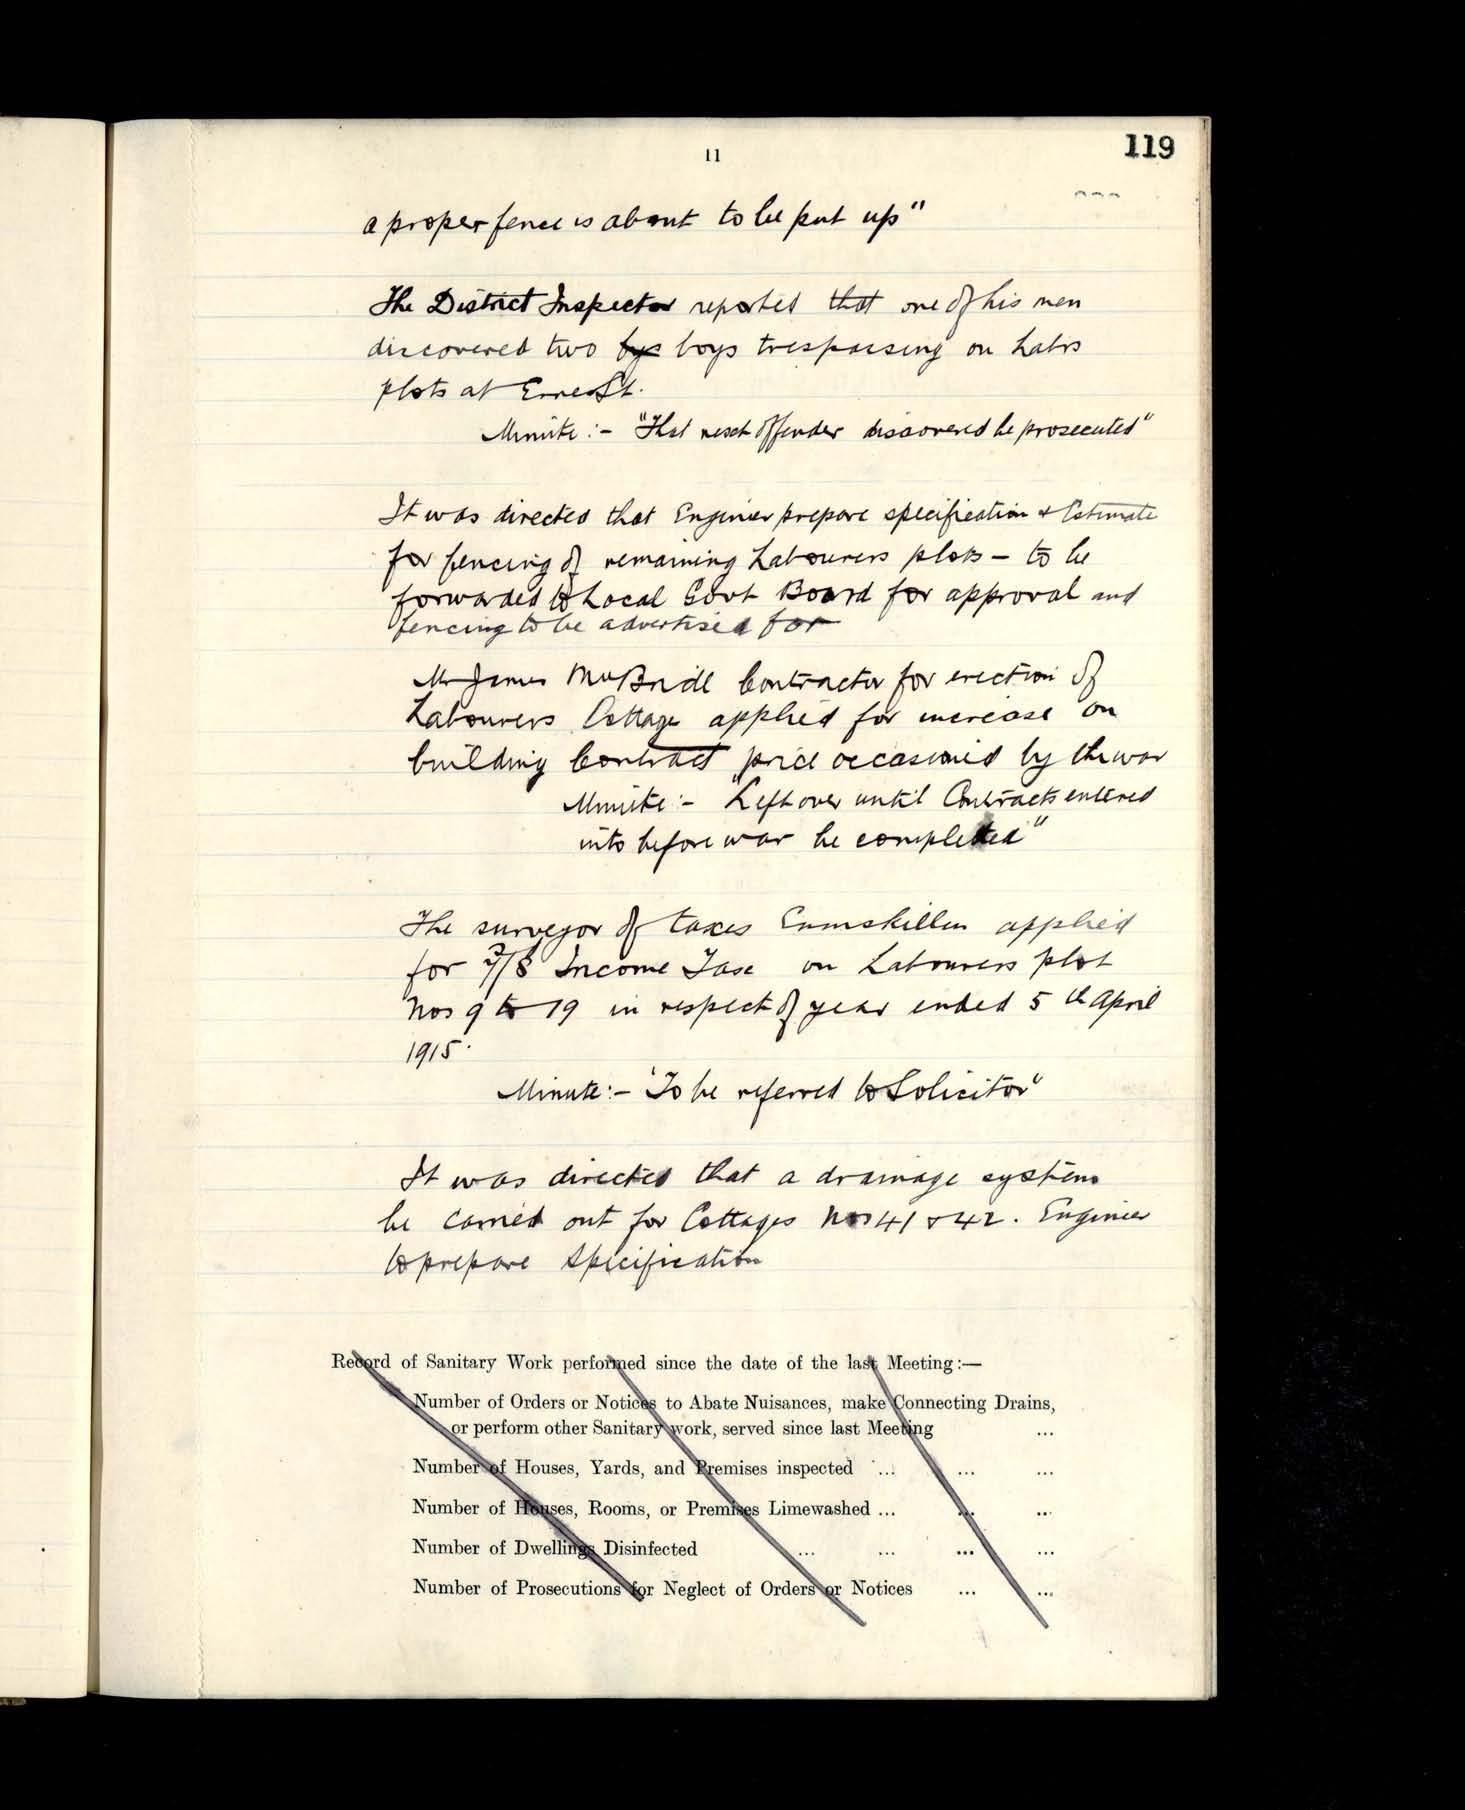 119
11
a proper fence is about to be put up"
The District Inspector reported that one of his men
discovered two bys boys trespassing on Labrs
plots at Erne St.
Minute :- "That next offender discovered be prosecuted"
It was directed that Engineer prepare specification & Estimate
for fencing of remaining Labourers plots - to be
forwarded to Local Govt Board for approval and
fencing to be advertised for
Mr James McBride Contractor for erection of
Labourers Cottage applied for increase on
building Contract price occasioned by the war
Minute :- "Left over until Contracts entered
into before war be completed"
The surveyor of taxes Enniskillen applied
for Income Tax on Labourers plot
Nos 9 to 19 in respect of year ended 5th April
1915.
Minute :- "To be referred to Solicitor"
It was directed that a drainage system
be carried out for Cottages Nos 41 & 42. Engineer
to prepare specification
Record of Sanitary Work performed since the date of the last Meeting :—
Number of Orders or Notices to Abate Nuisances, make Connecting Drains,
or perform other Sanitary work, served since last Meeting ...
Number of Houses, Yards, and Premises inspected ... ... ...
Number of Houses, Rooms, or Premises Limewashed ... ... ...
Number of Dwellings Disinfected ... ... ... ...
Number of Prosecutions for Neglect of Orders or Notices ... ...